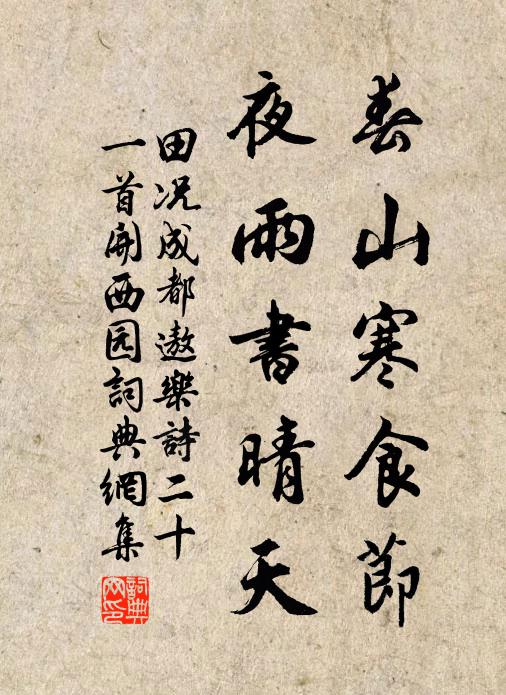 春山寒食節
夜雨書晴天
田况成都遨樂詩二十
一首開西园詞典網集
詞典网印